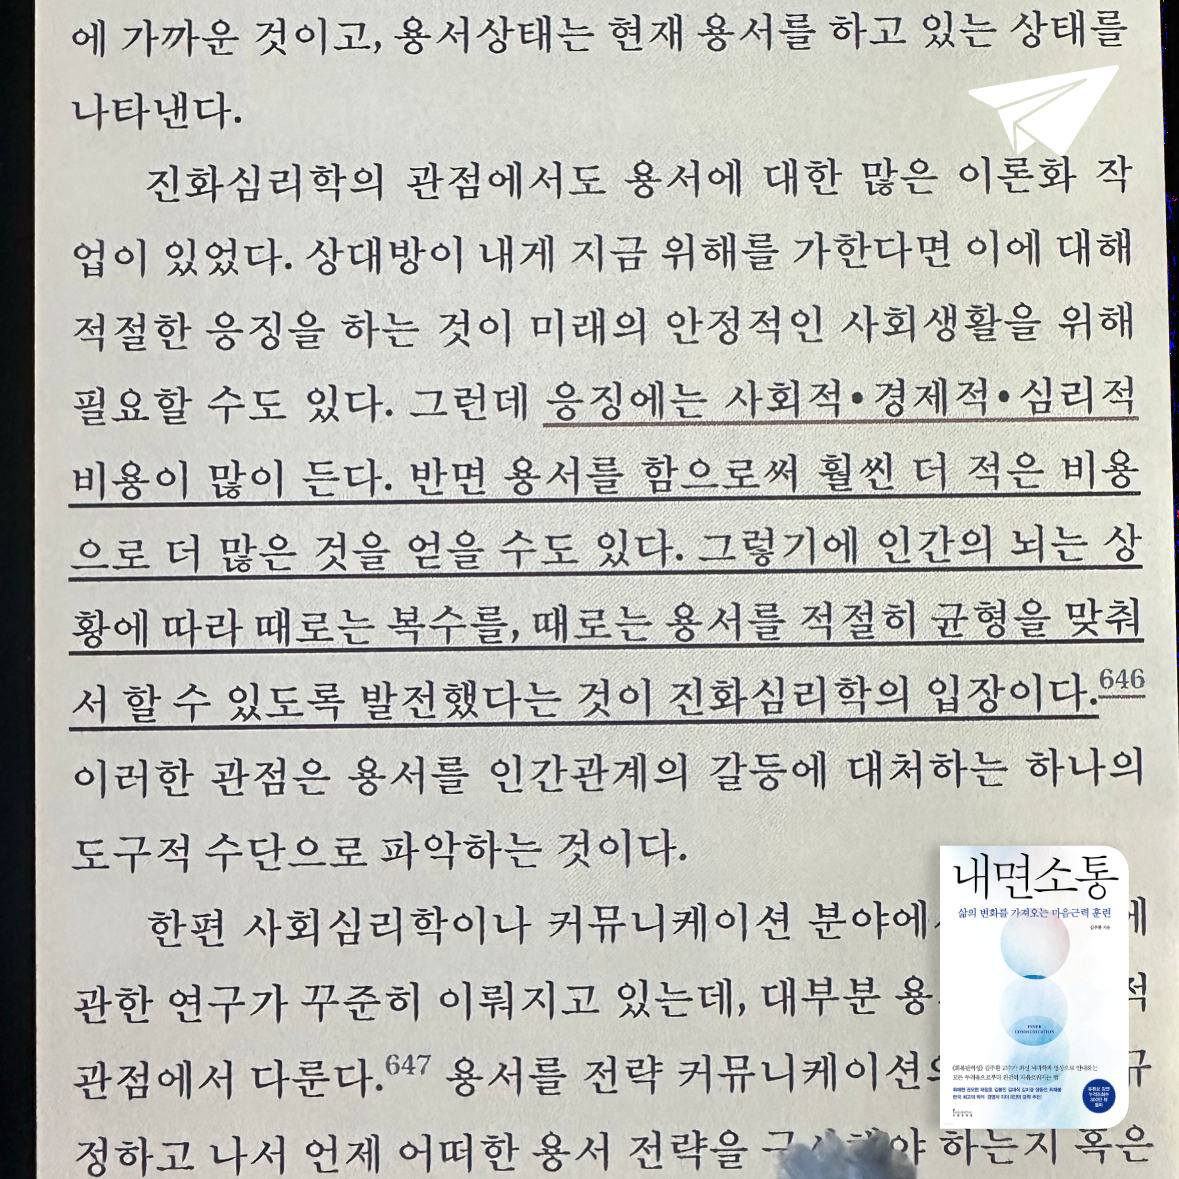 에 가까운 것이고, 용서상태는 현재 용서를 하고 있는 상태를
나타낸다.
진화심리학의 관점에서도 용서에 대한 많은 이론화 작
업이 있었다. 상대방이 내게 지금 위해를 가한다면 이에 대해
적절한 응징을 하는 것이 미래의 안정적인 사회생활을 위해
필요할 수도 있다. 그런데 응징에는 사회적•경제적•심리적
비용이 많이 든다. 반면 용서를 함으로써 훨씬 더 적은 비용
으로 더 많은 것을 얻을 수도 있다. 그렇기에 인간의 뇌는 상
황에 따라 때로는 복수를, 때로는 용서를 적절히 균형을 맞춰
서 할 수 있도록 발전했다는 것이 진화심리학의 입장이다.646
이러한 관점은 용서를 인간관계의 갈등에 대처하는 하나의
도구적 수단으로 파악하는 것이다.
한편 사회심리학이나 커뮤니케이션 분야에
관한 연구가 꾸준히 이뤄지고 있는데, 대부분 용 적
관점에서 다룬다.647 용서를 전략 커뮤니케이션의 구
정하고 나서 언제 어떠한 용서 전략을 하는지 혹은
내면소통
삶의 변화를 가져오는 마음근력 훈련
김주환 지음
INNER
COMMUNICATION